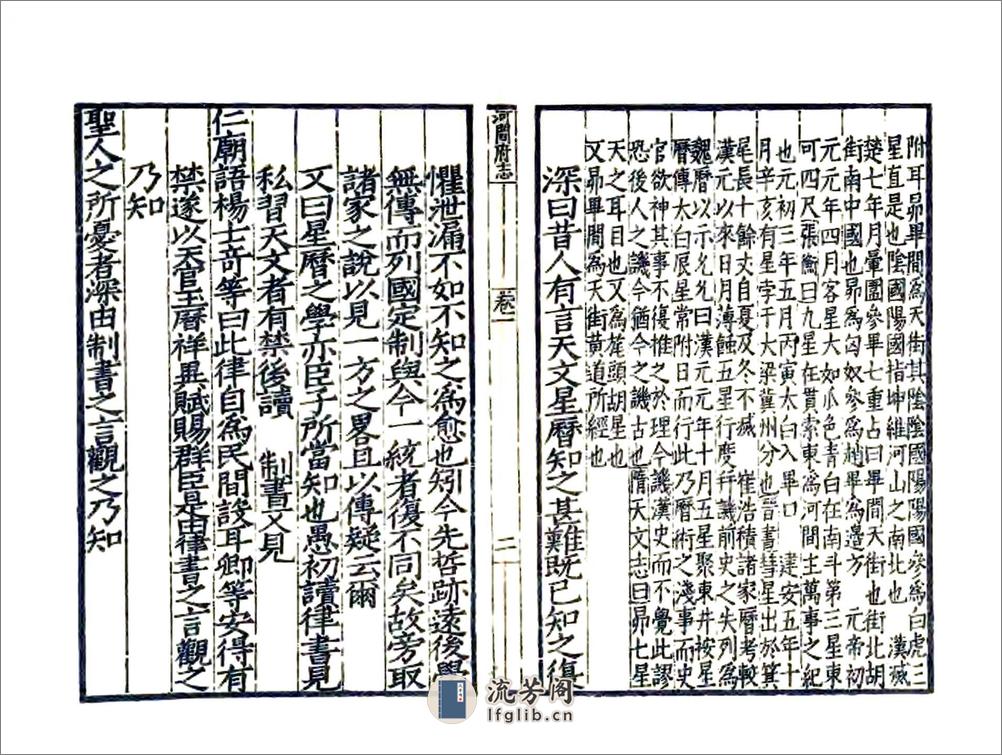 附耳昴畢間為天街其陰陰國陽陽國參為白虎三
星直是也陰國陽國指坤維河山之南北也　漢滅
楚七年月暈圍參畢七重占曰畢間天街也街北胡
街南中國也昴為匈奴參為趙畢為邊方　元帝初
元元年四月客星大如瓜色青白在南斗第二星東
可四尺張衡曰九星在貫索東為河間主萬事之紀
也元初三年五月丙寅太白入畢口　建安五年十
月辛亥有星孛于大梁冀州分也晉書彗星出於箕
尾長十餘丈自夏及冬不滅　崔浩積諸家曆考較
漢元以來日月薄蝕五星行度并譏前史之失列為
魏曆以示允允曰漢元元年十月五星聚東井按星
曆傳太白辰星常附日而行此乃曆術之淺事而史
官欲神其事不復推之於理今譏漢史而不覺此謬
恐後人之譏今猶今之譏古也隋天文志曰昴七星
天之耳目也又為旄頭胡星也
又昴畢間為天街黃道所經也
深曰昔人有言天文星曆知之甚難既已知之復
河間府志
卷一
二
懼泄漏不如不知之為愈也矧今先哲跡遠後學
無傳而列國定制與今一統者復不同矣故旁取
諸家之說以見一方之畧且以傳疑云爾
又曰星曆之學亦臣子所當知也愚初讀律書見
私習天文者有禁後讀　制書又見
仁廟語楊士奇等曰此律自為民間設耳卿等安得有
禁遂以天官玉曆祥異賦賜群臣是由律書之言觀之
乃知
聖人之所憂者深由制書之言觀之乃知
流芳阁
lfglib.cn